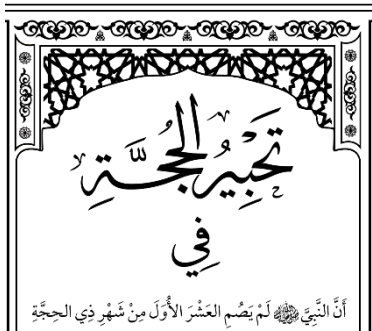 تَحْبِيرُ الحُجَّةِ لَهُ
فِي
أَنَّ النَّبِيَّ ﷺ لَمْ يَصُمِ العَشْرَ الأُوَلَ مِنْ شَهْرِ ذِي الحِجَّةِ